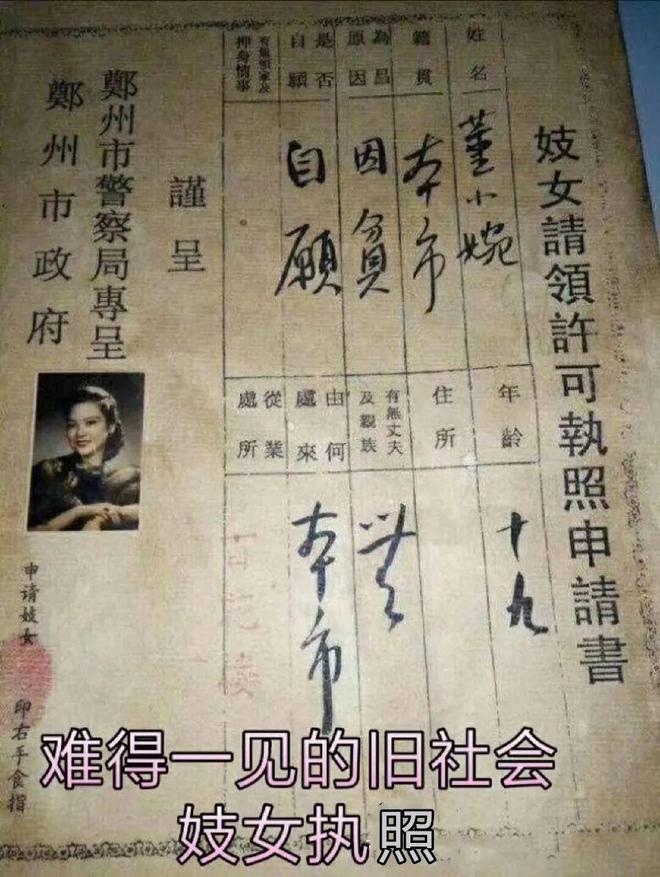 妓女請領許可執照申請書
姓名
董小婉
年龄
十九
籍貫
本市
住所
為昌
原因
因貧
有無丈夫
及親族
無
是否
自願
自願
由何
處來
本市
有無領家及
押身情事
從業
處所
謹呈
鄭州市警察局專呈
鄭州市政府
申请妓女
印右手食指
难得一见的旧社会
妓女执照